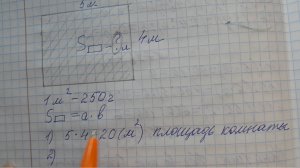 5м
S▭ - ? м
4м
1 м² - 250 г
S▭ = a · b
1) 5 · 4 = 20 (м²) площадь комнаты
2)